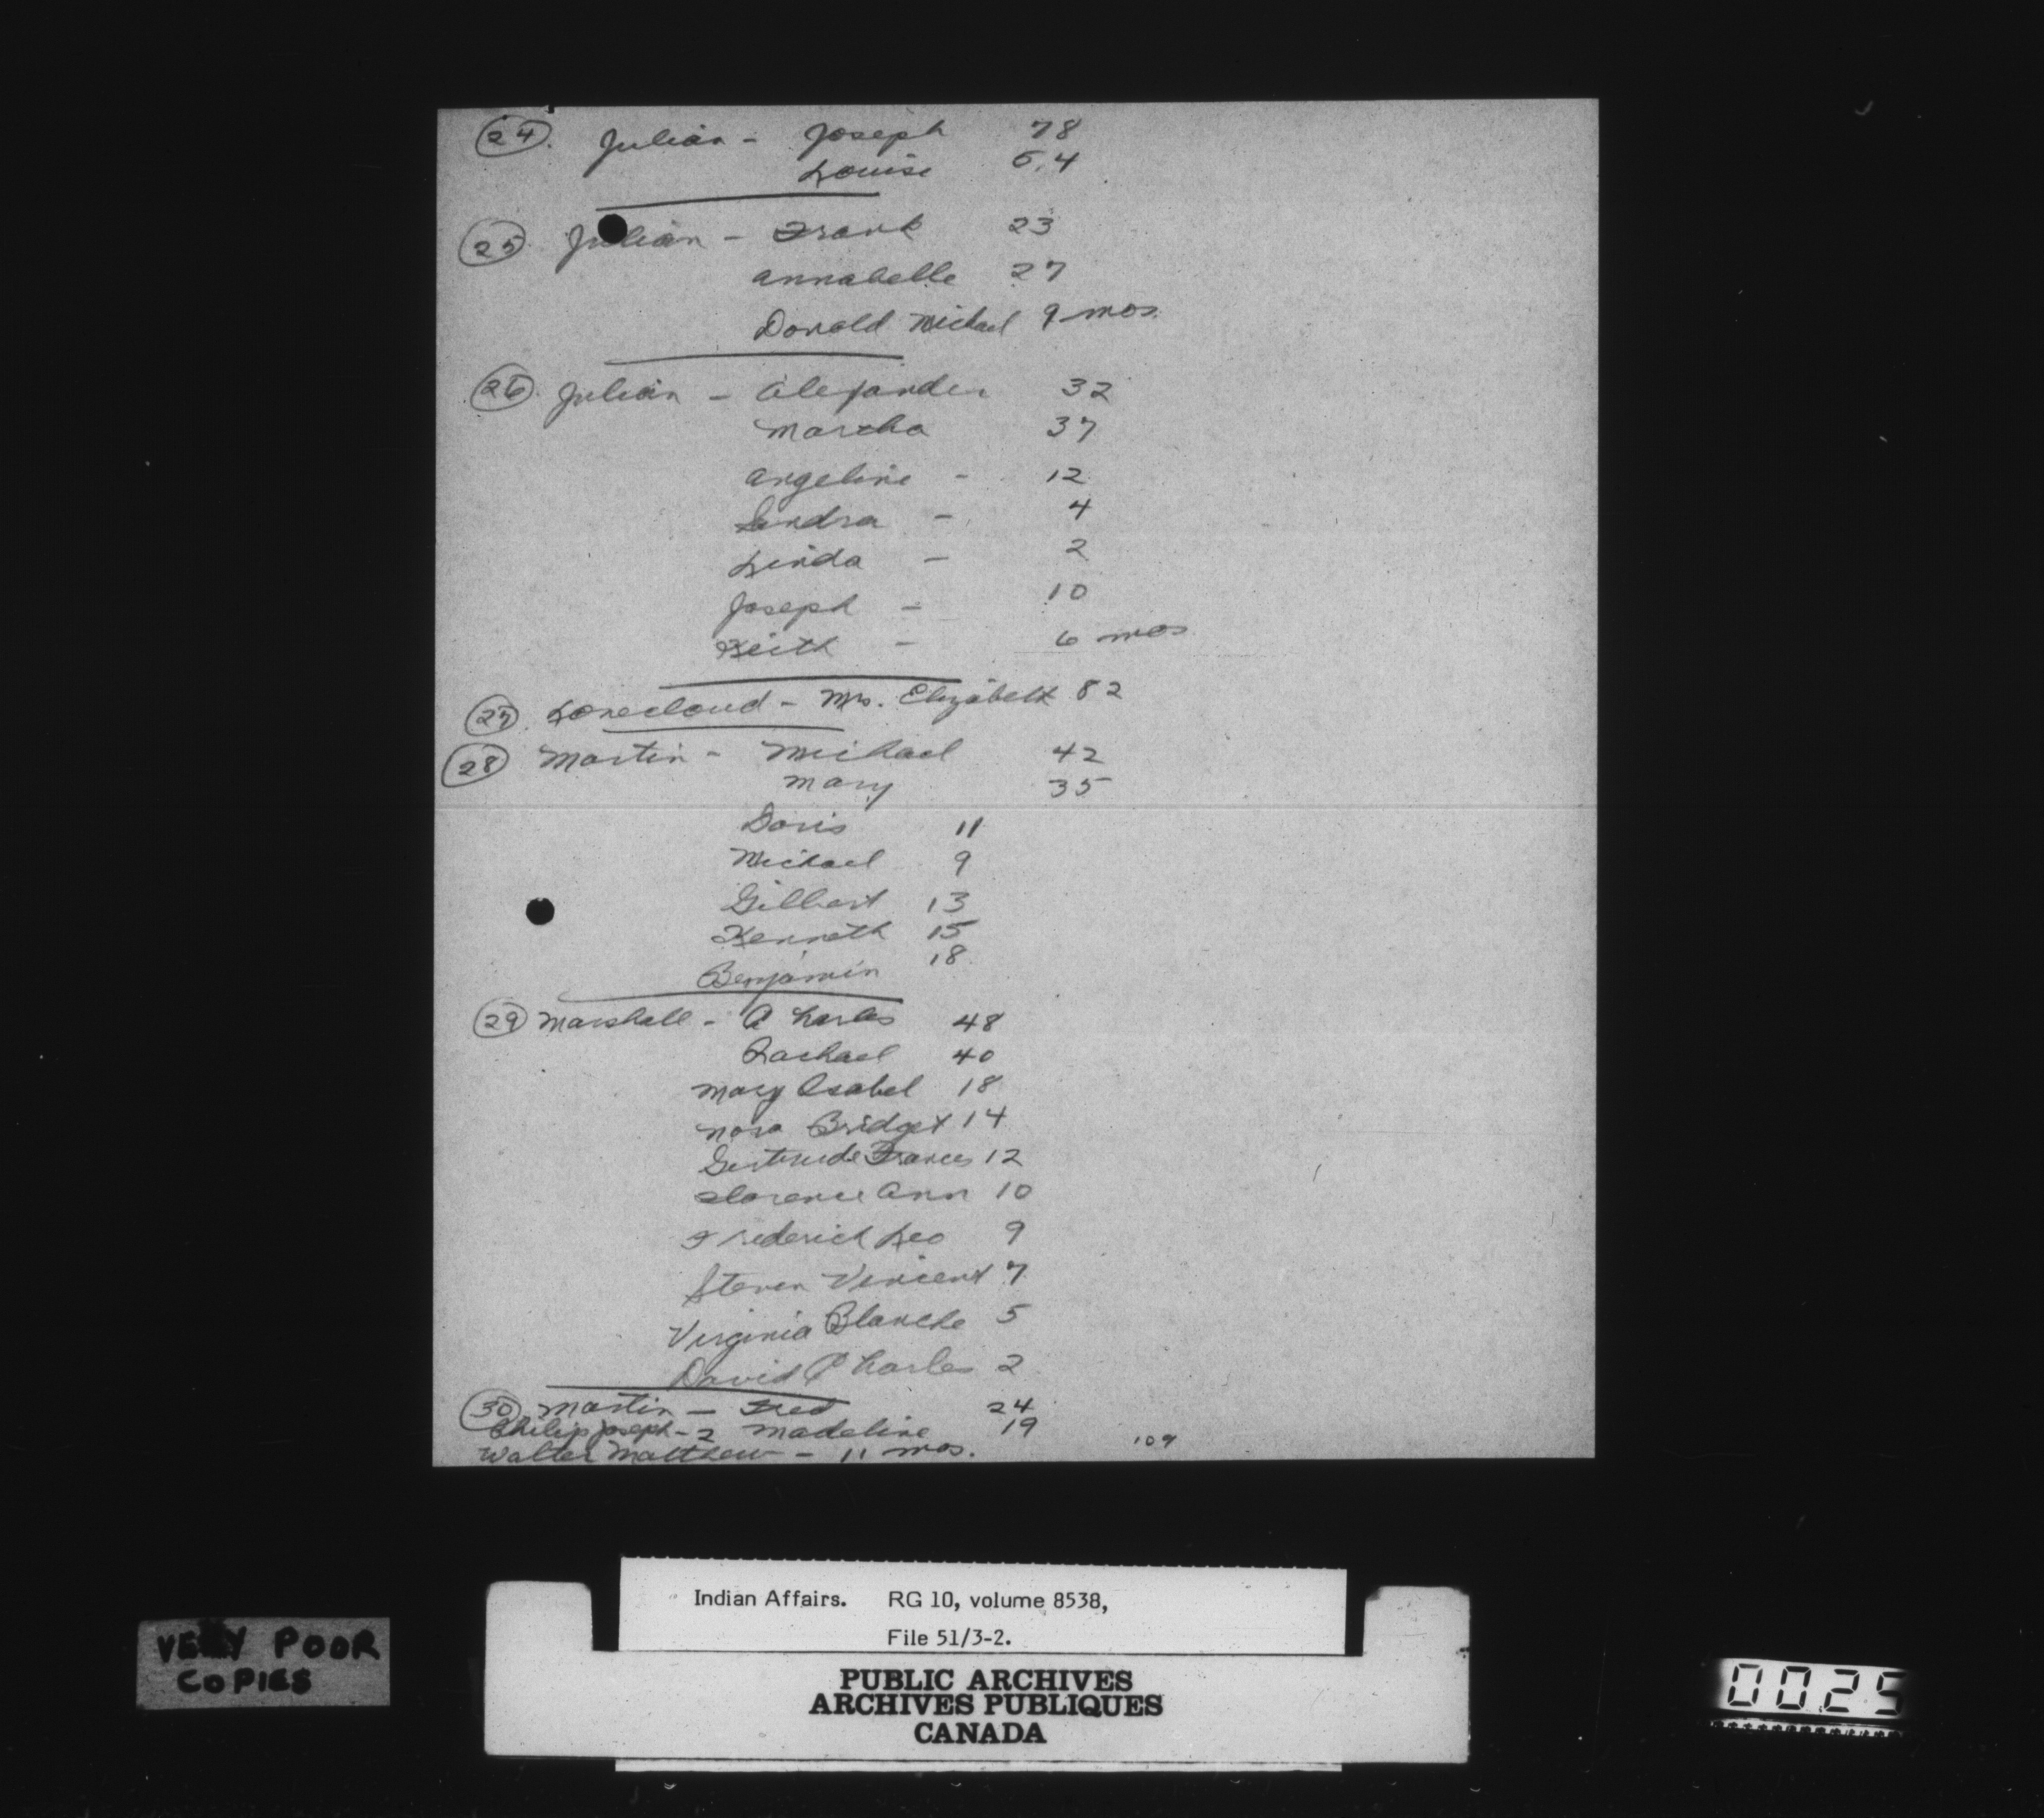 24. Julian - Joseph 78
Louise 64
25 Julian - Frank 23
Annabelle 27
Donald Michael 9 mos.
26 Julian - Alexander 32
Martha 37
Angeline - 12
Sandra - 4
Linda - 2
Joseph - 10
Keith - 6 mos
27 Lonecloud - Mrs. Elizabeth 82
28 Martin - Michael 42
Mary 35
Doris 11
Michael 9
Gilbert 13
Kenneth 15
Benjamin 18
29 Marshall - Charles 48
Rachael 40
Mary Isabel 18
Nora Bridget 14
Gertrude Frances 12
Florence Ann 10
Frederick Leo 9
Steven Vincent 7
Virginia Blanche 5
David Charles 2
30 Martin - Fred 24
Philip Joseph - 2 Madeline 19
Walter Matthew - 11 mos.
109
Indian Affairs. RG 10, volume 8538,
File 51/3-2.
PUBLIC ARCHIVES
ARCHIVES PUBLIQUES
CANADA
VERY POOR
COPIES
0025